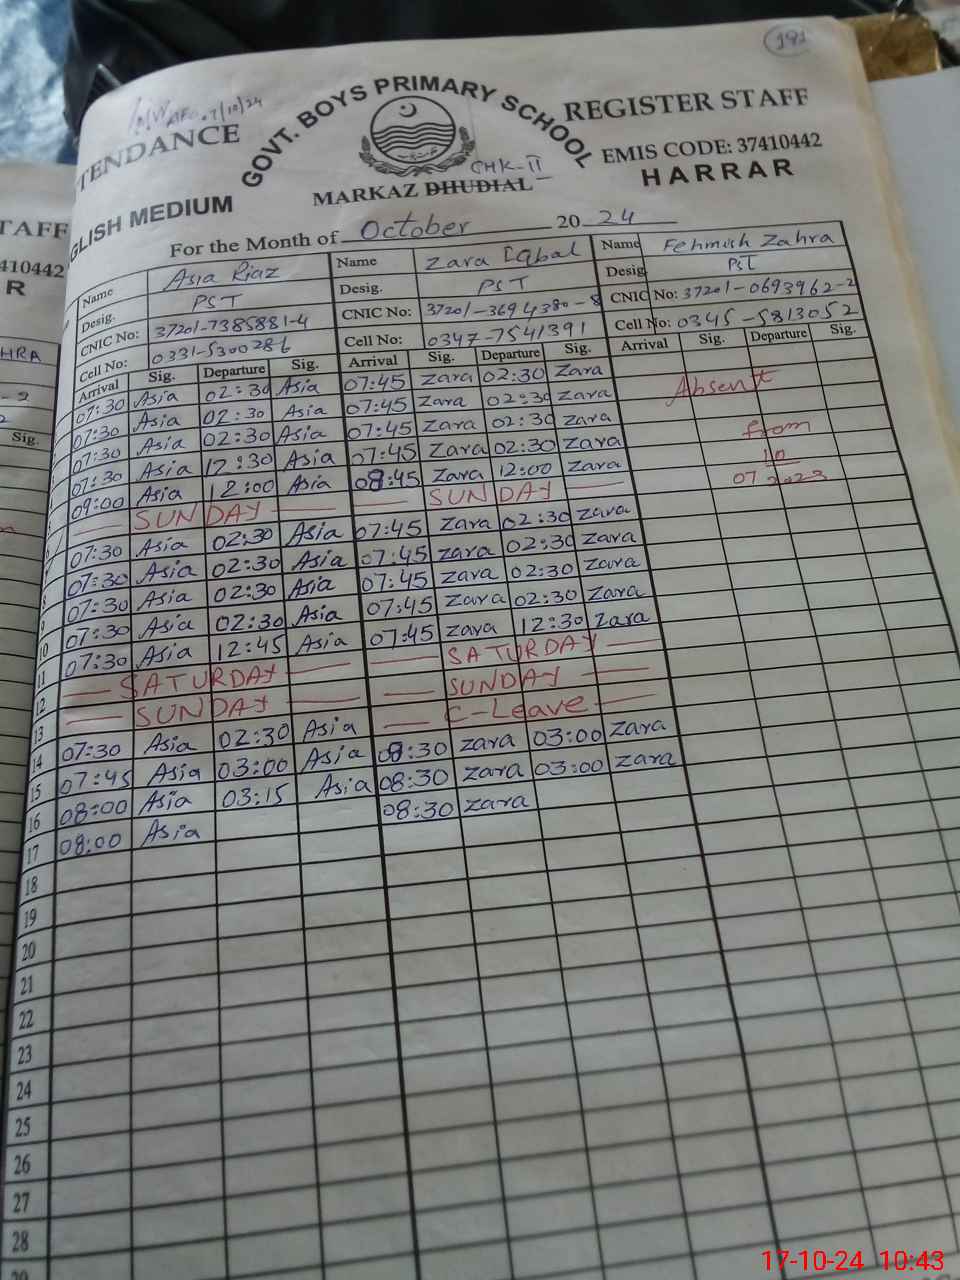 191
TENDANCE
GOVT. BOYS PRIMARY SCHOOL
REGISTER STAFF
EMIS CODE: 37410442
CHK-II
MARKAZ DHUDIAL
HARRAR
GLISH MEDIUM
TAFF
410442
R
For the Month of October 2024
Name Asia Riaz Name Zara Iqbal Name Fehmish Zahra
Desig. PST Desig. PST Desig PST
CNIC No: 37201-7385881-4 CNIC No: 37201-3694380-8 CNIC No: 37201-0693962-2
Cell No: 0331-5300286 Cell No: 0347-7541391 Cell No: 0345-5813052
HRA
Sig.
Arrival Sig. Departure Sig. Arrival Sig. Departure Sig. Arrival Sig. Departure Sig.
07:30 Asia 02:30 Asia 07:45 Zara 02:30 Zara
07:30 Asia 02:30 Asia 07:45 Zara 02:30 Zara
07:30 Asia 02:30 Asia 07:45 Zara 02:30 Zara
07:30 Asia 12:30 Asia 07:45 Zara 02:30 Zara
09:00 Asia 12:00 Asia 08:45 Zara 12:00 Zara
Absent
from
10
07 2023
SUNDAY SUNDAY
07:30 Asia 02:30 Asia 07:45 Zara 02:30 Zara
07:30 Asia 02:30 Asia 07:45 Zara 02:30 Zara
07:30 Asia 02:30 Asia 07:45 Zara 02:30 Zara
07:30 Asia 02:30 Asia 07:45 Zara 02:30 Zara
10 07:30 Asia 12:45 Asia 07:45 Zara 12:30 Zara
11 SATURDAY SATURDAY
12 SUNDAY SUNDAY
13 07:30 Asia 02:30 Asia C-Leave
14 07:45 Asia 03:00 Asia 08:30 Zara 03:00 Zara
15 08:00 Asia 03:15 Asia 08:30 Zara 03:00 Zara
16 08:00 Asia 08:30 Zara
17
18
19
20
21
22
23
24
25
26
27
28
17-10-24 10:43